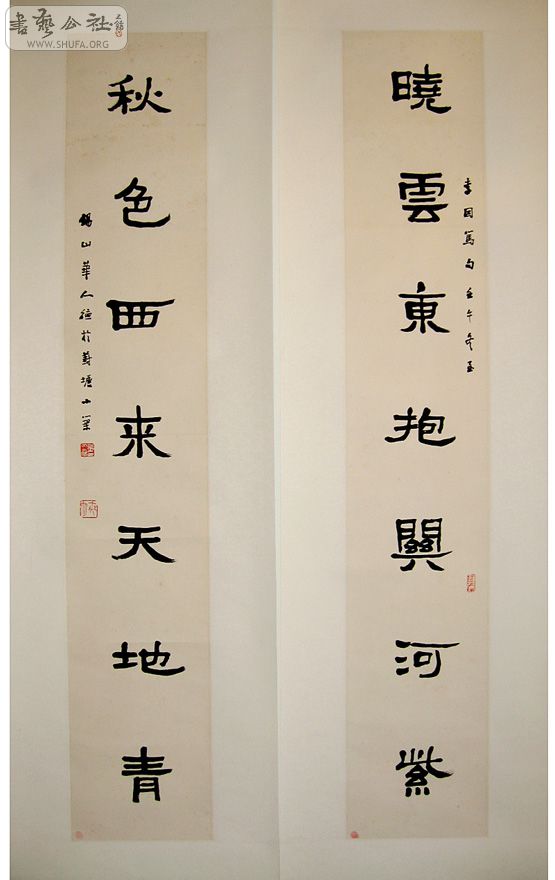 曉雲東抱關河紫
李因篤句 壬午冬至
秋色西来天地青
錫山華人德於葑塘小築
書藝公社
WWW.SHUFA.ORG